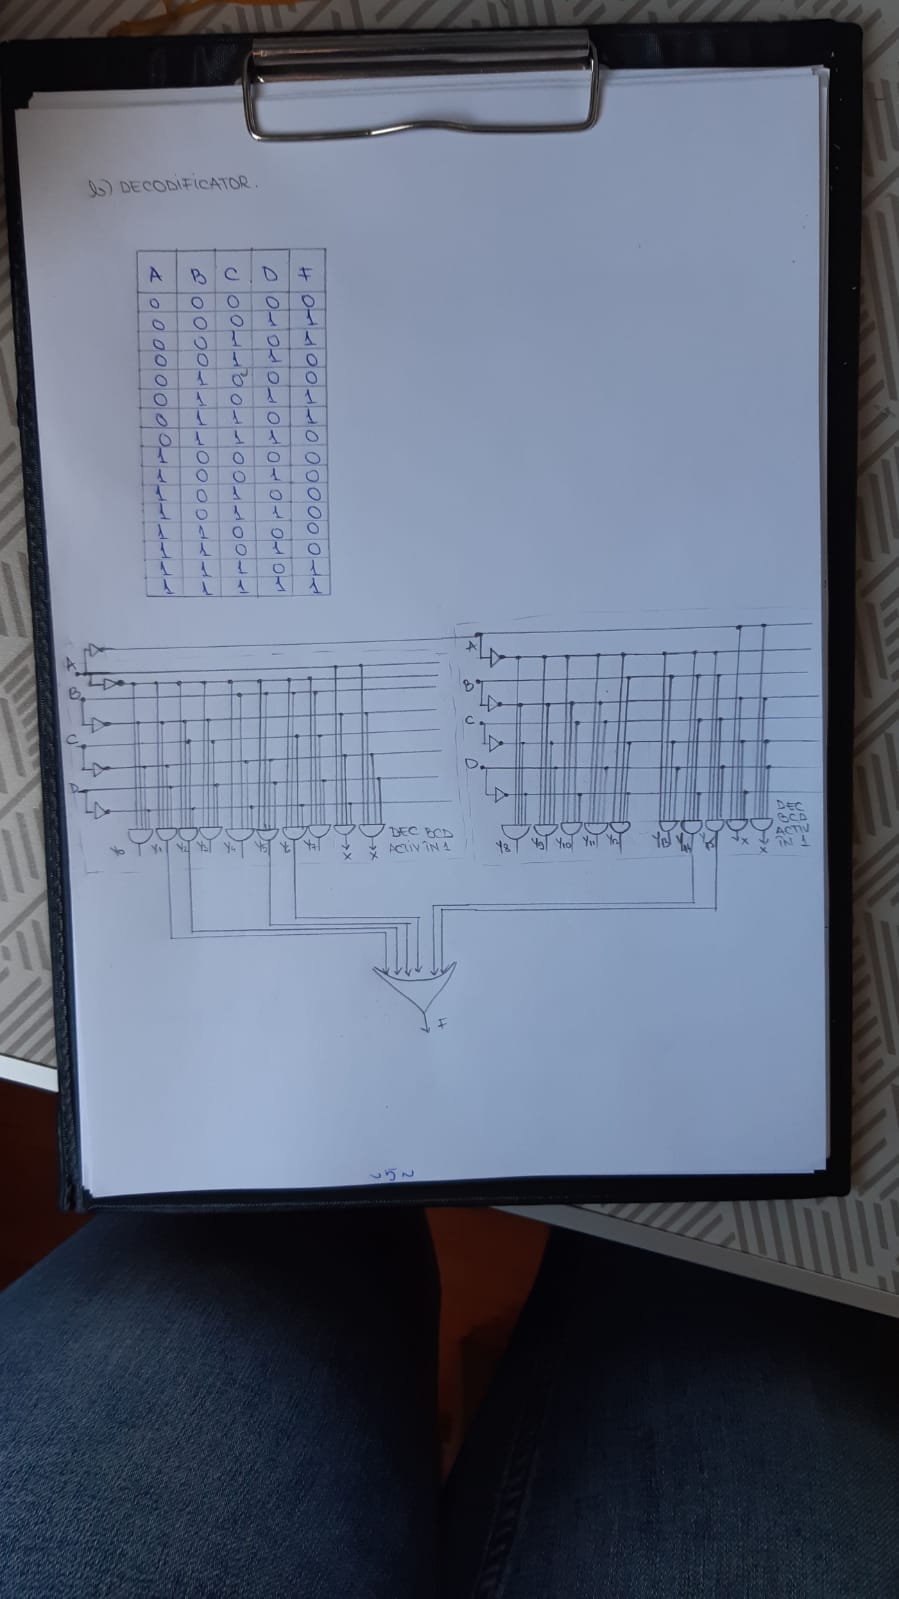 b) DECODIFICATOR.
A B C D F
0 0 0 0 0
0 0 0 1 1
0 0 1 0 1
0 0 1 1 0
0 1 0 0 0
0 1 0 1 1
0 1 1 0 1
0 1 1 1 0
1 0 0 0 0
1 0 0 1 0
1 0 1 0 0
1 0 1 1 0
1 1 0 0 0
1 1 0 1 0
1 1 1 0 1
1 1 1 1 1
A
B
C
D
Y0 Y1 Y2 Y3 Y4 Y5 Y6 Y7 X X
DEC BCD
ACTIV IN 1
A
B
C
D
Y8 Y9 Y10 Y11 Y12 Y13 Y14 Y15 X X
DEC
BCD
ACTIV
IN 1
F
~5~